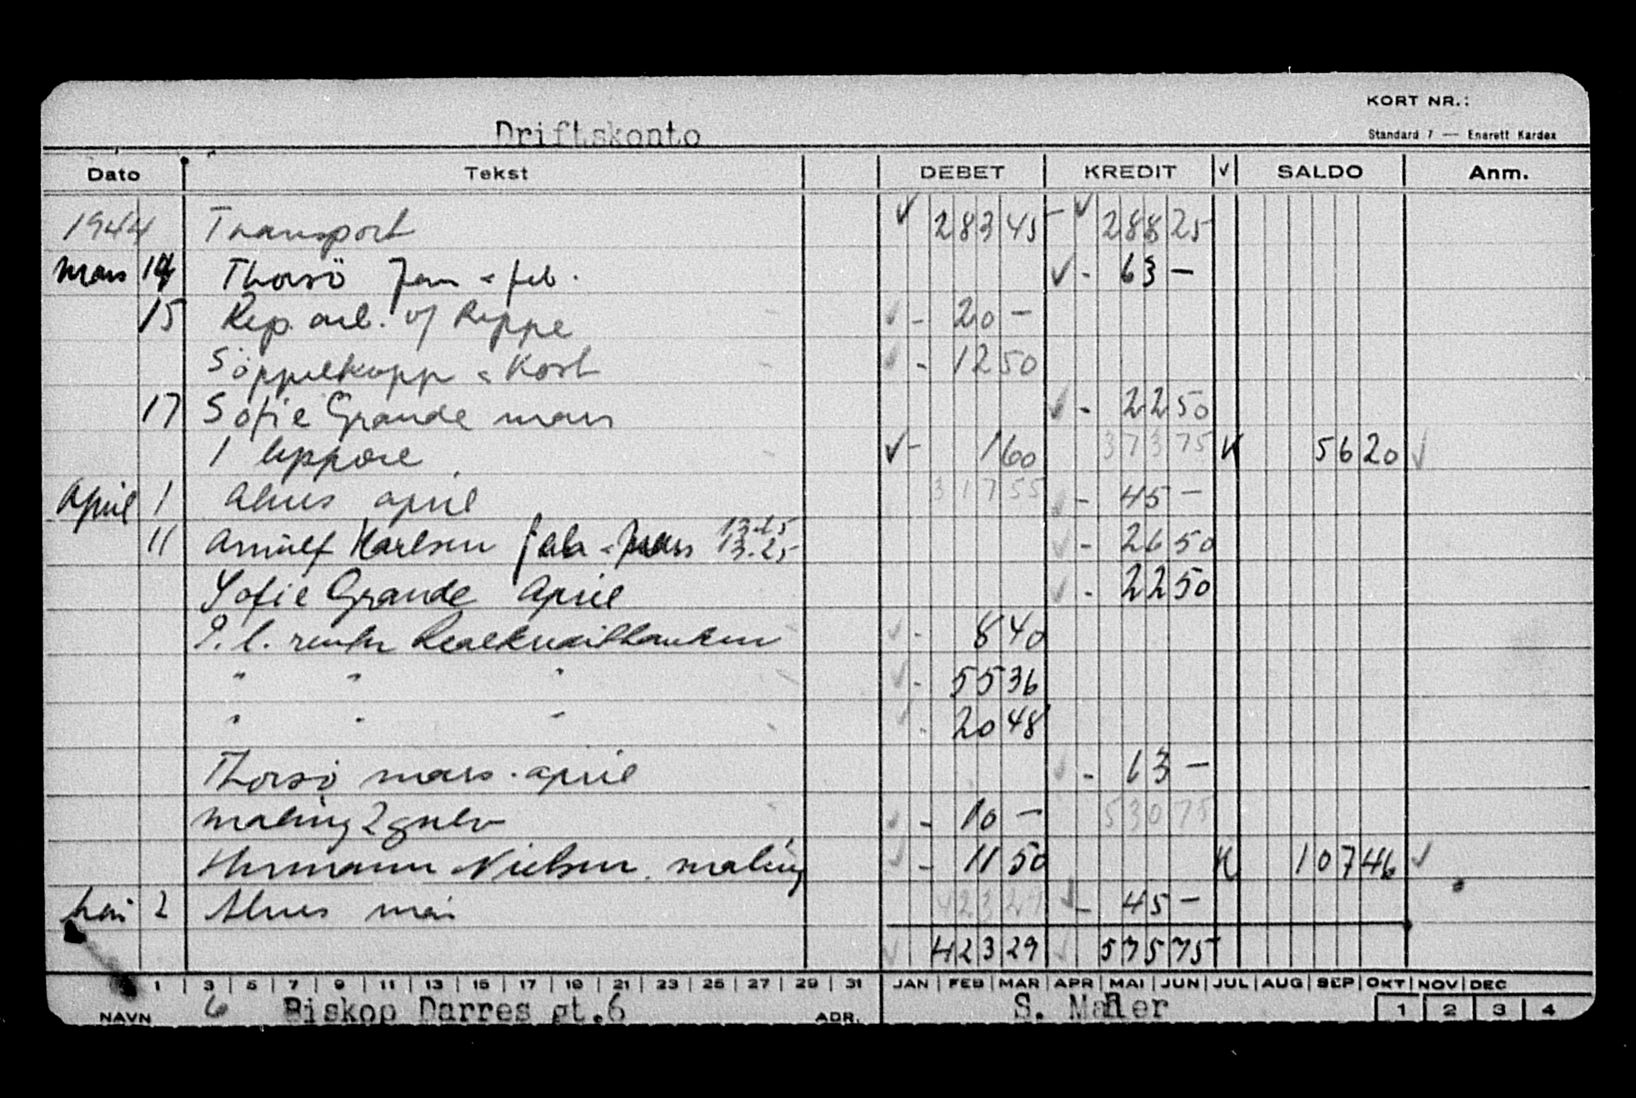 KORT NR.:
Driftskonto
Standard 7 — Enerett Kardex
Dato Tekst DEBET KREDIT √ SALDO Anm.
1944 Transport √ 283 45 - √ 288 25
Mars 14 Thorsö Jan - feb. √ - 63 -
15 Rep. arb. v/ Reppe √ - 20 -
Söppelkopp - Kost √ - 12 50
17 Sofie Grande mars √ - 22 50
1 lyppære √ - 1 60 373 75 K 56 20 √
April 1 Alnes april 317 55 √ - 45 -
11 Arnulf Karlsen feb - Mars 13.25 13.25 √ - 26 50
Sofie Grande April √ - 22 50
P.l. renter Realkreditbanken √ - 8 40
" " " √ - 55 36
" " " √ - 20 48
Thorsö mars - april √ - 63 -
Maling 2 gulv √ - 10 - 530 75
Hermann Nielsen. maling √ - 11 50 K 107 46 √
Mai 2 Alnes mai 423 29 √ - 45 -
√ 423 29 √ 575 75
1 3 5 7 9 11 13 15 17 19 21 23 25 27 29 31 JAN FEB MAR APR MAI JUN JUL AUG SEP OKT NOV DEC
NAVN 6 Biskop Darres gt.6 ADR. S. Møller 1 2 3 4